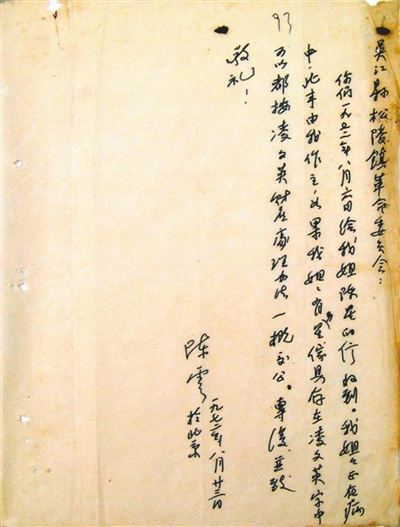 93
吴江县松陵镇革命委员会：
你们一九七二年八月六日给我姐陈星的信收到。我姐姐正在病
中，此事由我作主，如果我姐姐有些家具存在凌文英家中
可以都按凌文英财产处理办法一概交公。专复并致
敬礼！
陈云
一九七二年八月廿三日
于北京